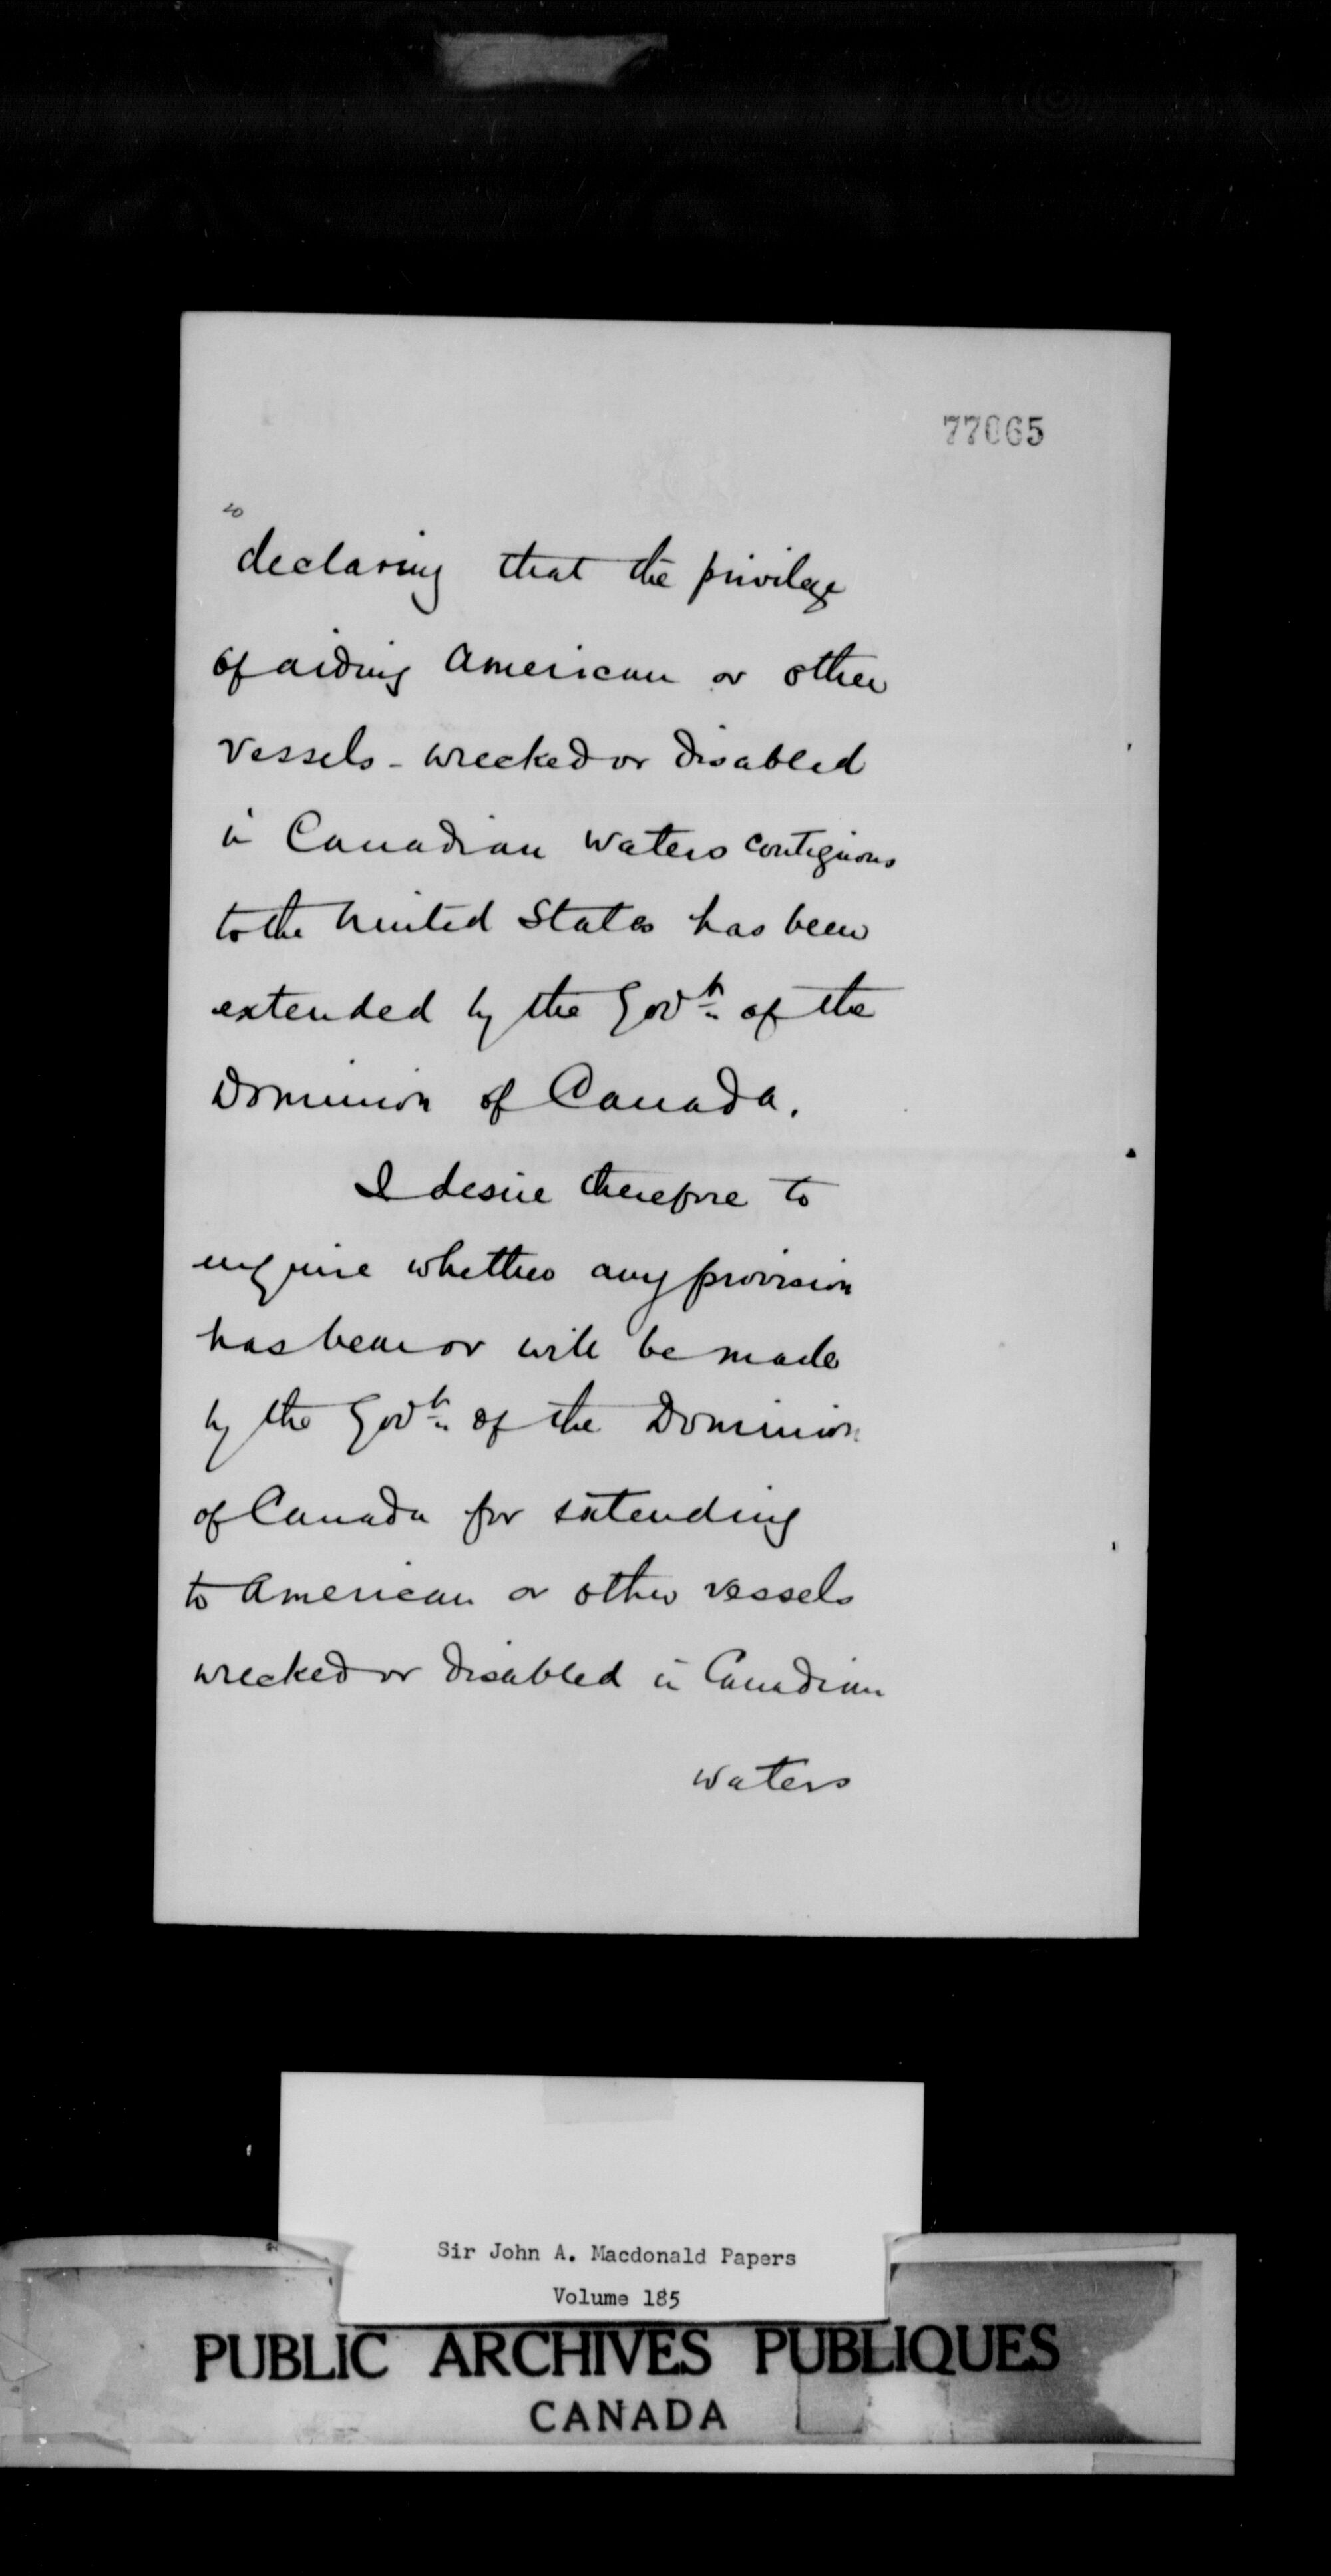 77065
so
declaring that the privilege
of aiding American or other
vessels - wrecked or disabled
in Canadian waters contiguous
to the United States has been
extended by the Govt. of the
Dominion of Canada.
I desire therefore to
enquire whether any provision
has been or will be made
by the Govt. of the Dominion
of Canada for extending
to American or other vessels
wrecked or disabled in Canadian
waters
Sir John A. Macdonald Papers
Volume 185
PUBLIC ARCHIVES PUBLIQUES
CANADA